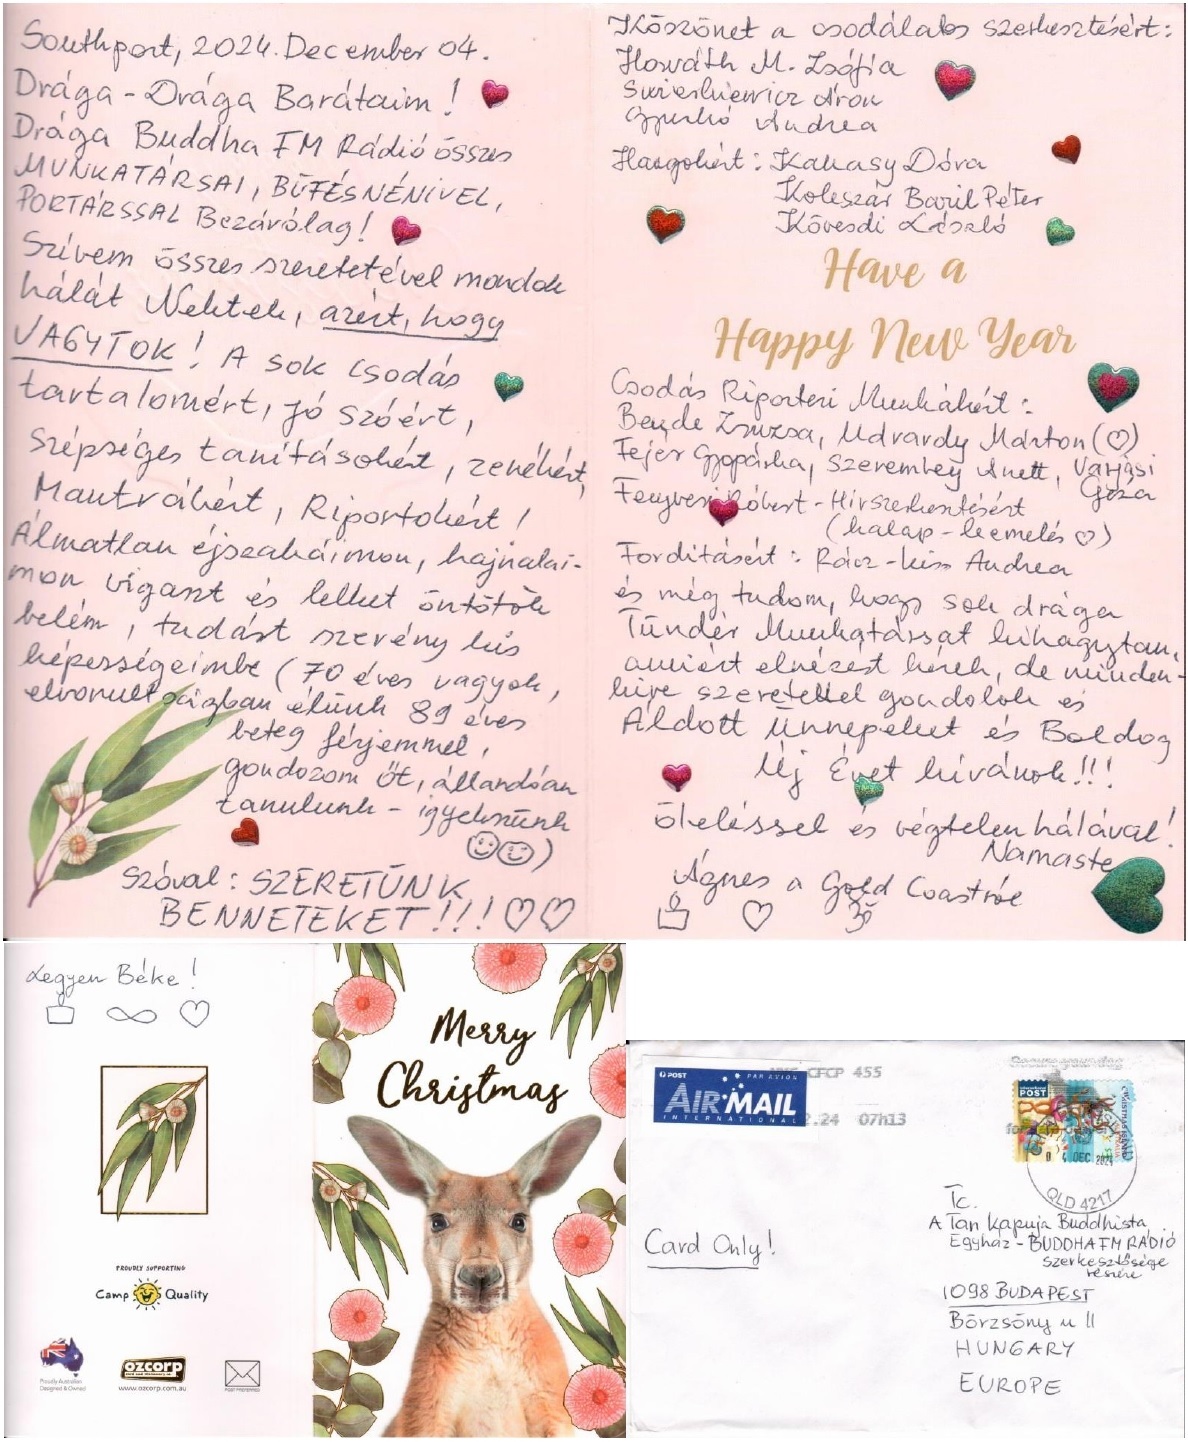 Southport, 2024. December 04.
Drága - Drága Barátaim!
Drága Buddha FM Rádió összes
MUNKATÁRSAI, BÜFÉSNÉNIVEL,
PORTÁRSSAL Bezárólag!
Szívem összes szeretetével mondok
hálát Nektek, azért, hogy
VAGYTOK! A sok csodás
tartalomért, jó szóért,
szépséges tanításokért, zenékért,
Mantrákért, Riportokért!
Álmatlan éjszakáimon, hajnalai-
mon vigaszt és lelket öntötök
belém, tudást szerény kis
képességeimbe (70 éves vagyok,
elvonultságban élünk 89 éves
beteg férjemmel,
gondozom őt, állandóan
tanulunk - igyekszünk
)
Szóval: SZERETÜNK
BENNETEKET!!!
Köszönet a csodálatos szerkesztésért:
Horváth M. Zsófia
Swierkiewicz Áron
Gyurkó Andrea
Hangokért: Kakasy Dóra
Koleszár Bazil Péter
Kövesdi László
Have a
Happy New Year
Csodás Riporteri Munkákért:
Bende Zsuzsa, Udvardy Márton (♡)
Fejér Gyopárka, Szerembey Anett, Varjasi
Géza
Fenyvesi Róbert - Hírszerkesztésért
(kalap-leemelés ♡)
Fordításért: Rácz-Kiss Andrea
és még tudom, hogy sok drága
Tündér Munkatársat kihagytam,
amiért elnézést kérek, de minden-
kire szeretettel gondolok és
Áldott Ünnepeket és Boldog
Új Évet kívánok!!!
Öleléssel és végtelen hálával!
Namaste
Ágnes a Gold Coastról
Legyen Béke!
Merry
Christmas
PROUDLY SUPPORTING
Camp Quality
Proudly Australian
Designed & Owned
ozcorp
www.ozcorp.com.au
POST
PAR AVION
AIR MAIL
INTERNATIONAL
CFCP 455
.24 07h13
POST
4 DEC 2024
QLD 4217
Card Only!
Tc.
A Tan Kapuja Buddhista
Egyház - BUDDHA FM RÁDIÓ
szerkesztősége
részére
1098 BUDAPEST
Börzsöny u 11
HUNGARY
EUROPE